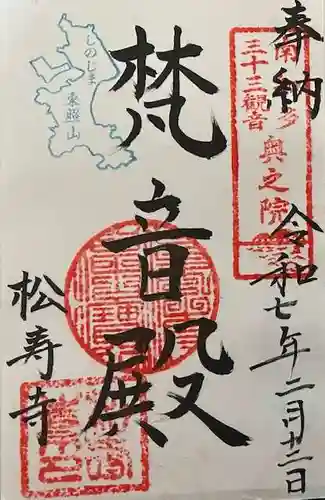 奉納
令和七年二月十三日
南知多
三十三観音
奥之院
梵音殿
しのじま
東照山
松寿寺